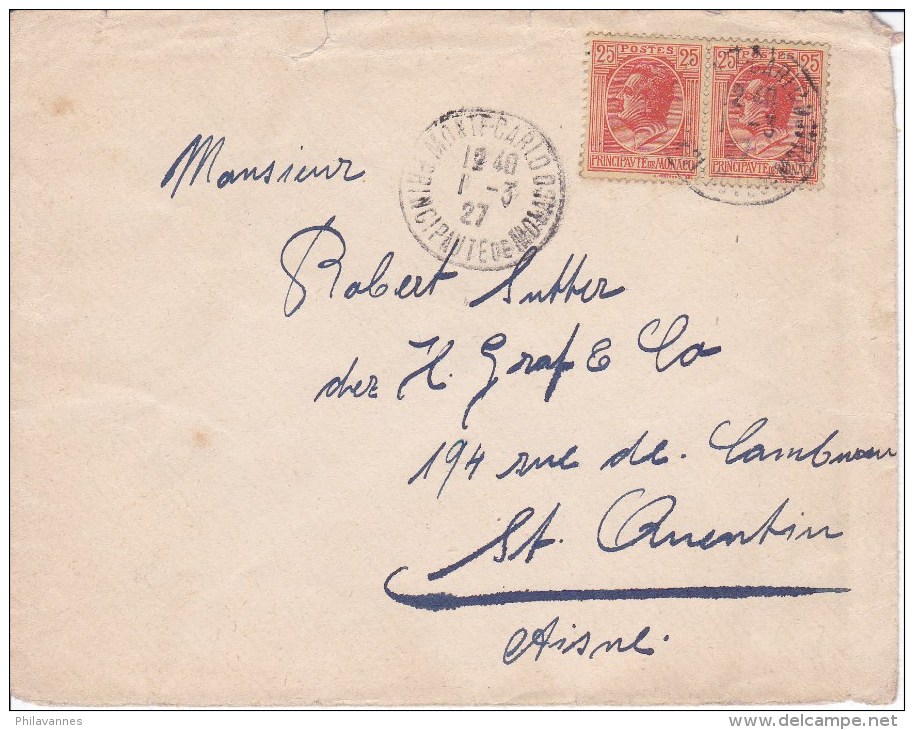 25 POSTES 25
PRINCIPAUTÉ DE MONACO
25 POSTES 25
PRINCIPAUTÉ DE MONACO
MONTE-CARLO
12 40
1 - 3
27
PRINCIPAUTÉ DE MONACO
12 40
- 3
Monsieur
Robert Sutter
chez H. Graf & Co
194 rue de
St. Quentin
Aisne.
Philavannes
www.delcampe.net